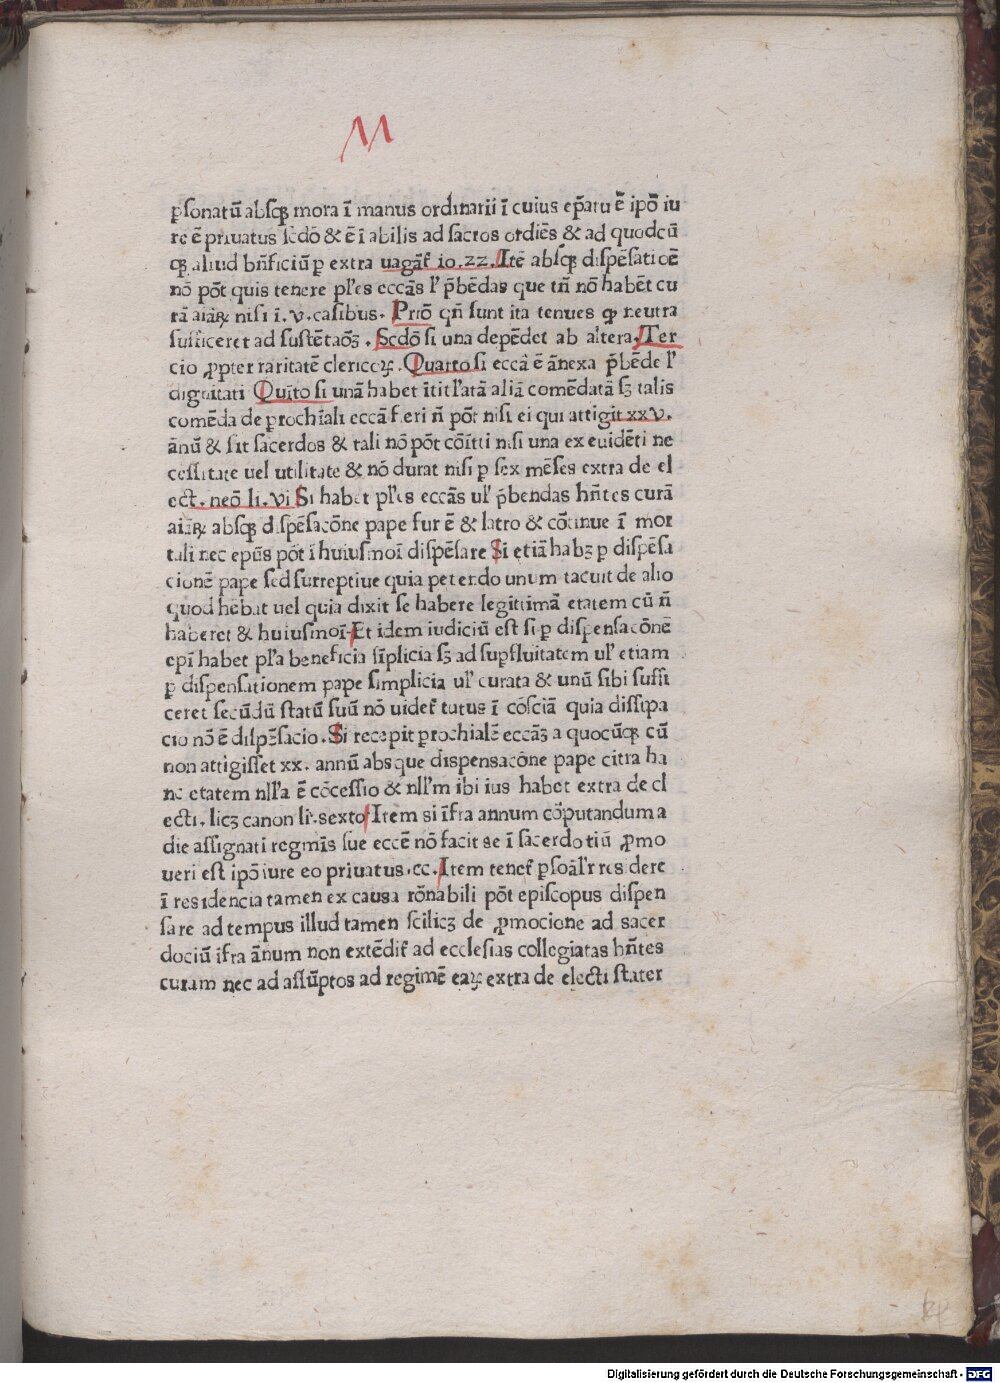 M
ꝑsonatū absqꝫ mora ī manus ordinarii ī cuius ep̄atu ē ipō iu
re ē priuatus scdō & ē ī abilis ad sacros ordiēs & ad quodcū
qꝫ aliud bn̄ficiū ꝑ extra uagāt io.22. Itē absqꝫ dispēsati cē
nō pōt quis tenere pl'es eccās l' p̄bēdas que tn̄ nō habēt cu
rā aiaꝝ nisi ī.v.casibus. Prīo qn̄ sunt ita tenues ꝙ neutra
sufficeret ad sustētaōꝫ. Scdō si una depēdet ab altera. Ter
cio ꝓpter raritatē clericoꝝ. Quarto si eccā ē ānexa p̄bēde l'
dignitati Quīto si unā habet ītit l'atā aliā comēdatā sꝫ talis
comēda de prochīali eccā fieri n̄ pōt nisi ei qui attigit xxv.
ānū & sit sacerdos & tali nō pōt cōītti nisi una ex euidēti ne
cessitate uel utilitate & nō durat nisi ꝑ sex mēses extra de el
ect. neō li. vi Si habet pl'es eccās ul' p̄bendas hn̄tes curā
aiaꝝ absqꝫ dispēsacōne pape fur ē & latro & cōtinue ī mor
tali nec epūs pōt ī huiusmoī dispēsare Si etiā habꝫ ꝑ dispēsa
cionē pape sed surreptiue quia petendo unum tacuit de alio
quod hēbat uel quia dixit se habere legittimā etatem cū n̄
haberet & huiusmoī. Et idem iudiciū est si ꝑ dispensacōnē
epī habet pl'a beneficia sīplicia sꝫ ad suꝑfluitatem ul' etiam
ꝑ dispensationem pape simplicia ul' curata & unū sibi suffi
ceret secūdū statū suū nō uidet tutus ī cōsciā quia dissipa
cio nō ē dispēsacio. Si recepit ꝑrochialē eccāꝫ a quocūqꝫ cū
non attigisset xx. annū absque dispensacōne pape citra ha
nc etatem nll'a ē cōcessio & nll'm ibi ius habet extra de el
ecti. licꝫ canon li. sexto Item si īfra annum cōputandum a
die assignati regmīs sue eccē nō facit se ī sacerdotiū ꝓmo
ueri est ipō iure eo priuatus.cc. Item tenet ꝑsoāl'r residere
ī residencia tamen ex causa rōnabili pōt episcopus dispen
sare ad tempus illud tamen scilicꝫ de ꝓmocione ad sacer
dociū īfra ānum non extēdit ad ecclesias collegiatas hn̄tes
curam nec ad assūptos ad regimē eaꝝ extra de electi stater
Digitalisierung gefördert durch die Deutsche Forschungsgemeinschaft - DFG